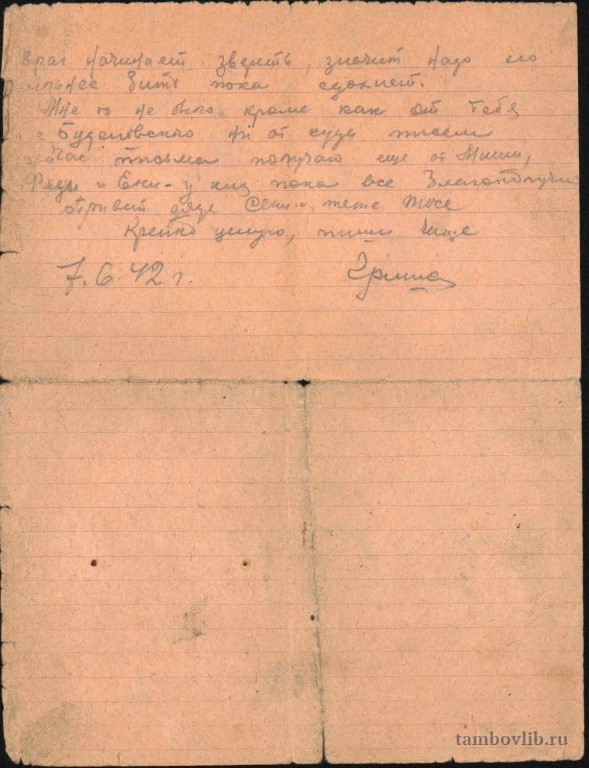 враг начинает звереть, значит надо его
сильнее бить пока сдохнет.
Мне то не было кроме как от тебя
и с Буденовского ни от куда писем
сейчас письма получаю еще от Миши,
Феди и Ени - у них пока все благополучно
Привет дяде Сени и тете Тосе
Крепко целую, пиши чаще
7.6.42 г.
Гриша
tambovlib.ru